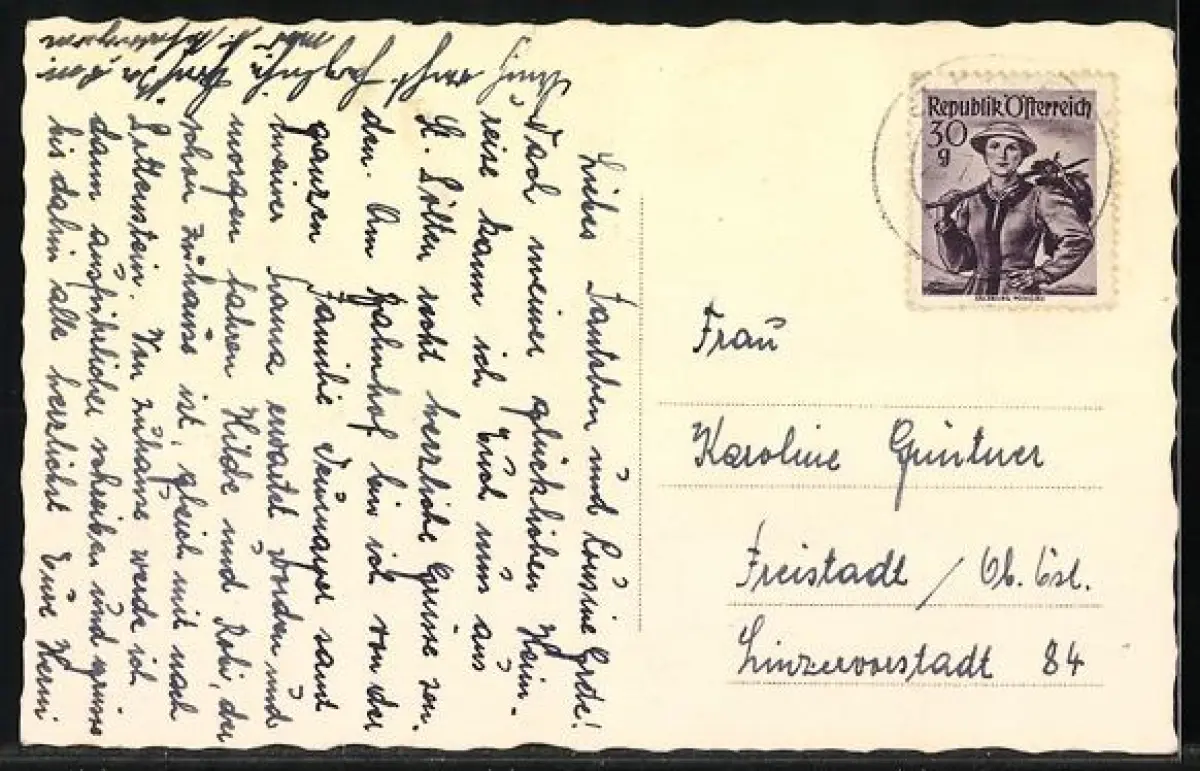 Liebes Tantchen und Cousine Grete!
Nach meiner glücklichen Heim-
reise kann ich Euch nun aus
St. Pölten recht herzliche Grüsse sen-
den. Am Bahnhof bin ich von der
ganzen Familie Neumayer samt
meiner Mama erwartet worden und
morgen fahren Hilde und Robi, der
schon zuhause ist, gleich mit nach
Lettenstein. Von zuhause werde ich
dann ausführlicher schreiben und grüsse
bis dahin alle herzlichst Eure Hermi
Auch recht herzliche
Republik Österreich
30 g
Frau
Karoline Güntner
Freistadt / Ob. Öst.
Linzervorstadt 84